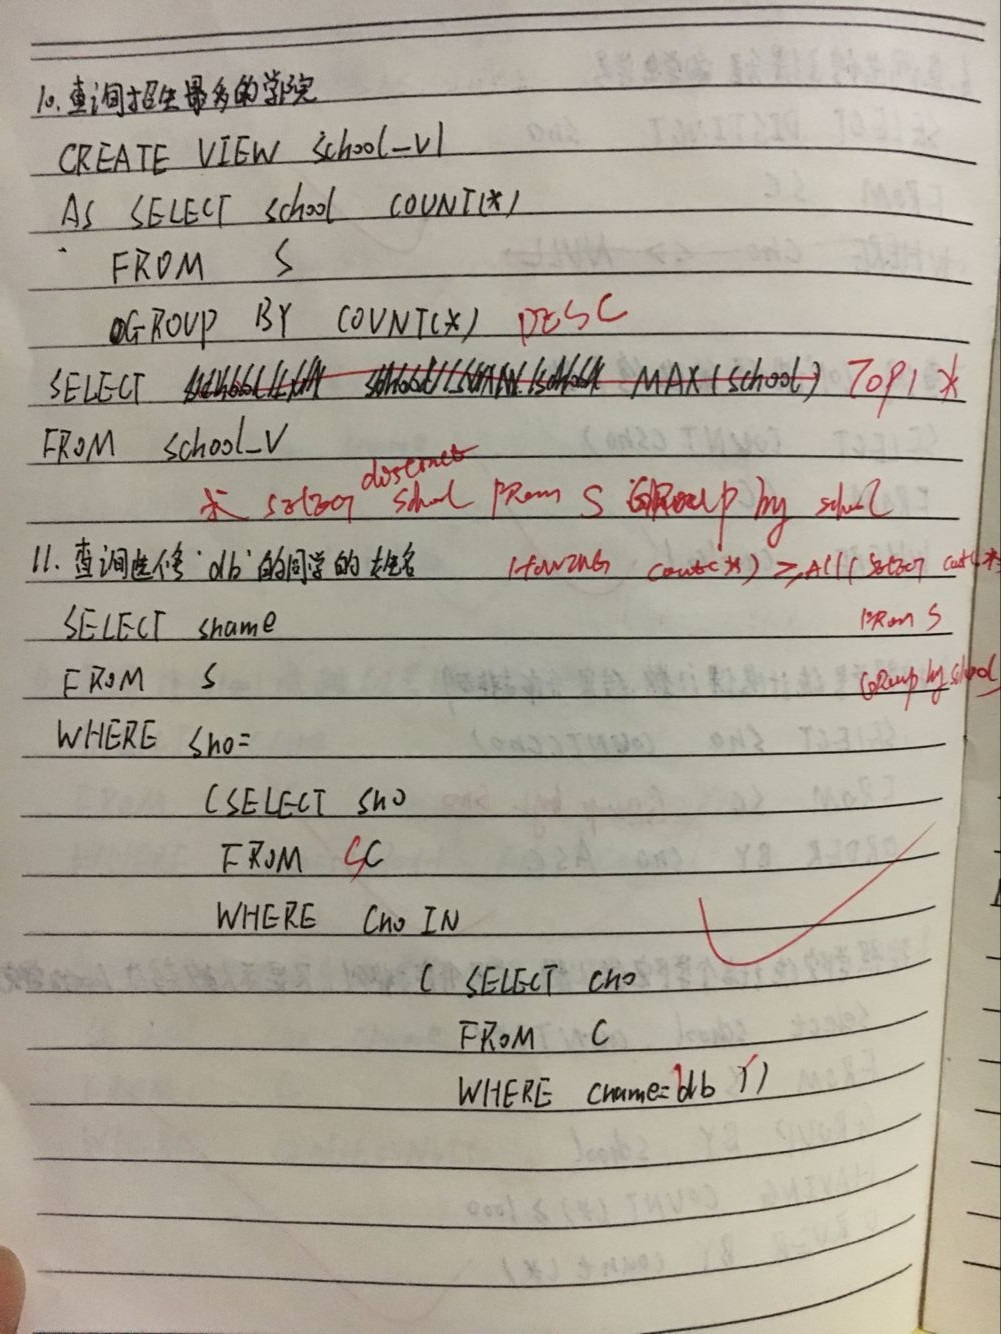 10. 查询招生最多的学院
CREATE VIEW school_V
AS SELECT school COUNT(*)
FROM S
GROUP BY COUNT(*) DESC
SELECT MAX(school) TOP1 *
FROM school_V
distinct
select school From S GRoup by school
11. 查询选修'db'的同学的姓名
Having count(*) ≥ All ( select count(*)
SELECT sname
From S
FROM S
GRoup by school
WHERE sno=
(SELECT sno
FROM SC
WHERE cno IN
( SELECT cno
FROM C
WHERE cname='db'))